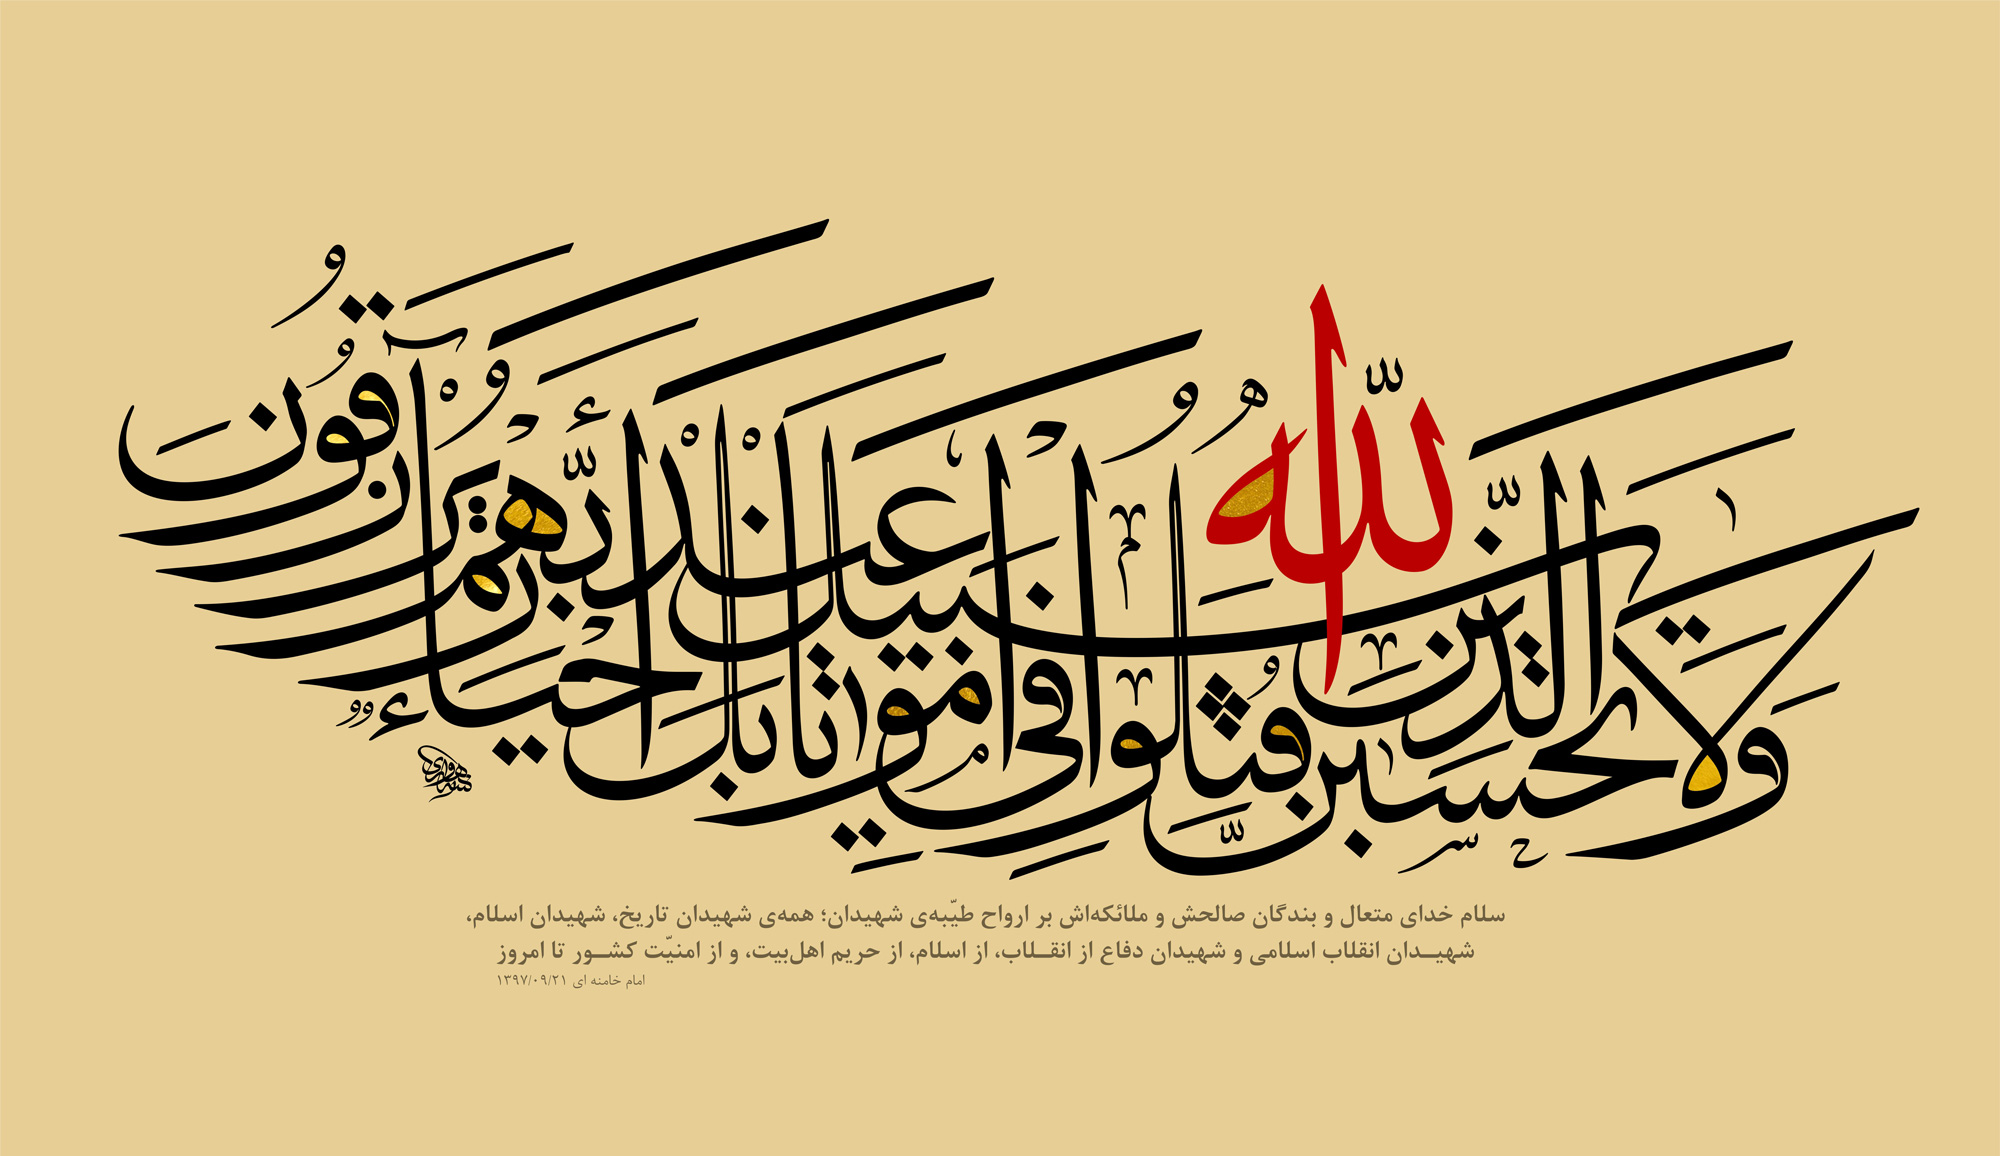 وَلَا تَحْسَبَنَّ الَّذِينَ قُتِلُوا فِي سَبِيلِ اللَّهِ أَمْوَاتًا بَلْ أَحْيَاءٌ عِنْدَ رَبِّهِمْ يُرْزَقُونَ
سلام خدای متعال و بندگان صالحش و ملائکه‌اش بر ارواح طیّبه‌ی شهیدان؛ همه‌ی شهیدان تاریخ، شهیدان اسلام،
شهیـدان انقلاب اسلامی و شهیدان دفاع از انقـلاب، از اسلام، از حریم اهل‌بیت، و از امنیّت کشـور تا امروز
امام خامنه ای ۱۳۹۷/۰۹/۲۱